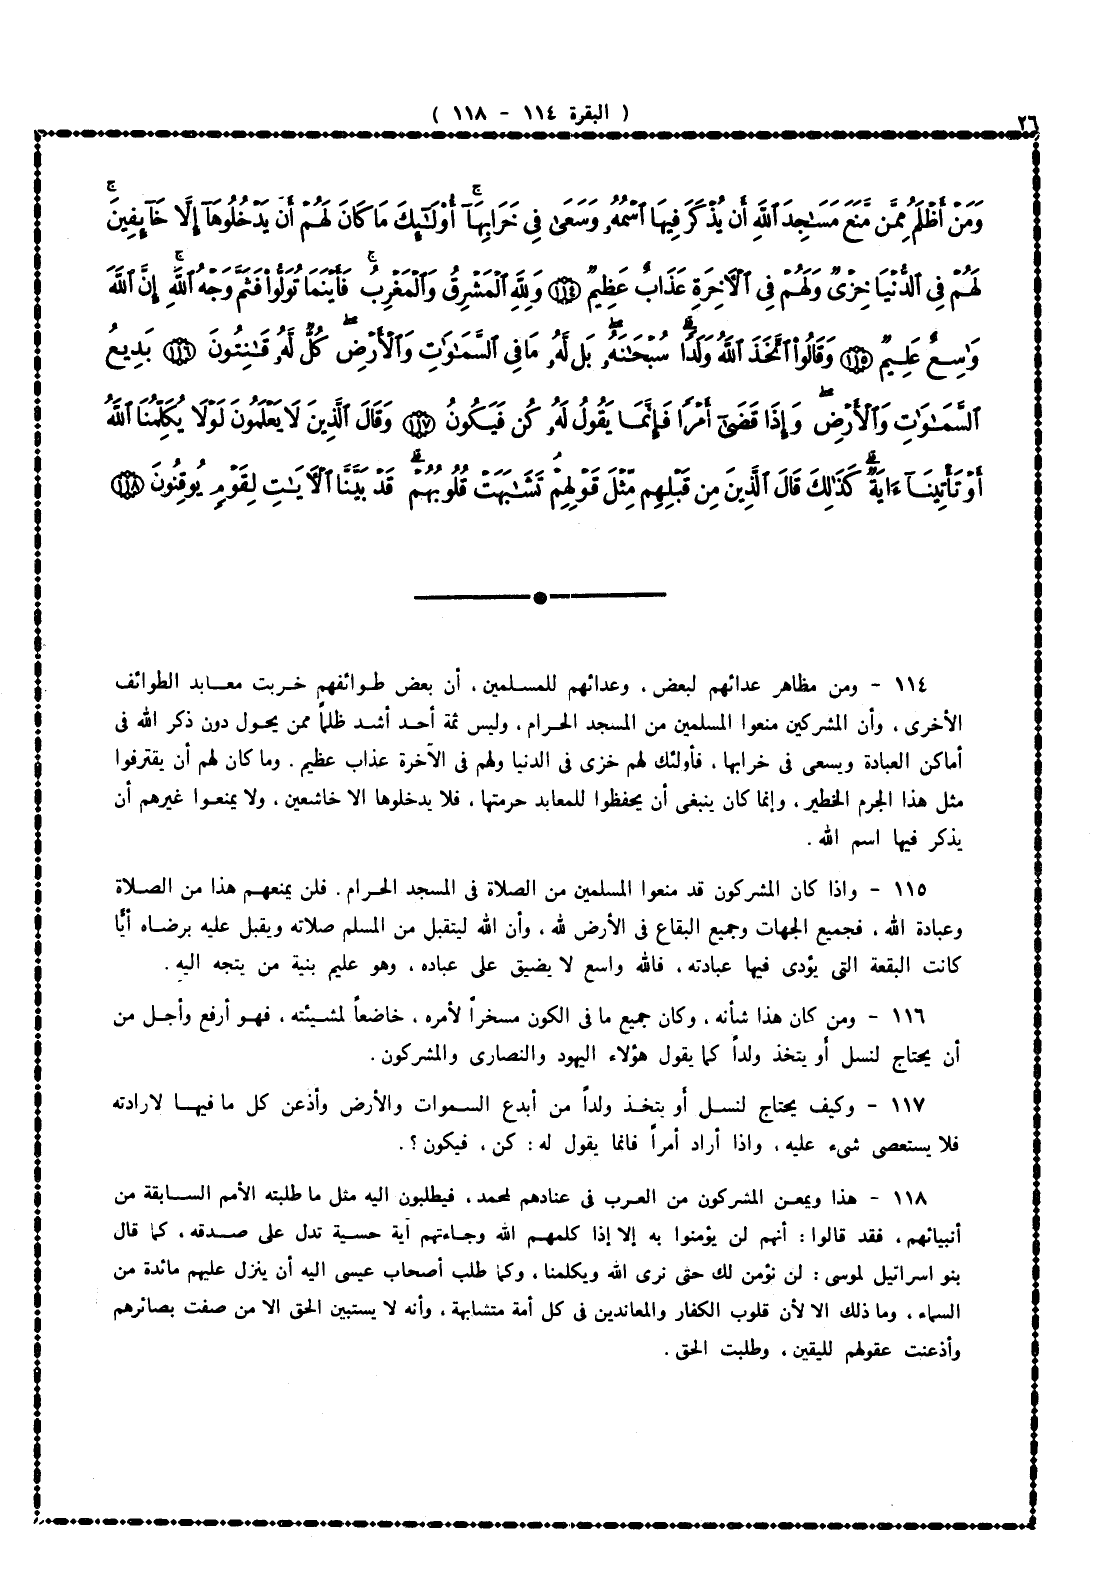 ( البقرة ١١٤ - ١١٨ )
٢٦
وَمَنْ أَظْلَمُ مِمَّن مَّنَعَ مَسَٰجِدَ ٱللَّهِ أَن يُذْكَرَ فِيهَا ٱسْمُهُۥ وَسَعَىٰ فِي خَرَابِهَآ ۚ أُوْلَٰٓئِكَ مَا كَانَ لَهُمْ أَن يَدْخُلُوهَآ إِلَّا خَآئِفِينَ ۚ
لَهُمْ فِي ٱلدُّنْيَا خِزْيٌ وَلَهُمْ فِي ٱلْأَخِرَةِ عَذَابٌ عَظِيمٌ ﴿١١٤﴾ وَلِلَّهِ ٱلْمَشْرِقُ وَٱلْمَغْرِبُ ۚ فَأَيْنَمَا تُوَلُّواْ فَثَمَّ وَجْهُ ٱللَّهِ ۚ إِنَّ ٱللَّهَ
وَٰسِعٌ عَلِيمٌ ﴿١١٥﴾ وَقَالُواْ ٱتَّخَذَ ٱللَّهُ وَلَدًا ۗ سُبْحَٰنَهُۥ ۖ بَل لَّهُۥ مَا فِي ٱلسَّمَٰوَٰتِ وَٱلْأَرْضِ ۖ كُلٌّ لَّهُۥ قَٰنِتُونَ ﴿١١٦﴾ بَدِيعُ
ٱلسَّمَٰوَٰتِ وَٱلْأَرْضِ ۖ وَإِذَا قَضَىٰٓ أَمْرًا فَإِنَّمَا يَقُولُ لَهُۥ كُن فَيَكُونُ ﴿١١٧﴾ وَقَالَ ٱلَّذِينَ لَا يَعْلَمُونَ لَوْلَا يُكَلِّمُنَا ٱللَّهُ
أَوْ تَأْتِينَآ ءَايَةٌ ۗ كَذَٰلِكَ قَالَ ٱلَّذِينَ مِن قَبْلِهِم مِّثْلَ قَوْلِهِمْ ۘ تَشَٰبَهَتْ قُلُوبُهُمْ ۗ قَدْ بَيَّنَّا ٱلْأَيَٰتِ لِقَوْمٍ يُوقِنُونَ ﴿١١٨﴾
١١٤ - ومن مظاهر عدائهم لبعض ، وعدائهم للمسلمين ، أن بعض طوائفهم خربت معابد الطوائف
الأخرى ، وأن المشركين منعوا المسلمين من المسجد الحرام ، وليس ثمة أحد أشد ظلماً ممن يحول دون ذكر الله فى
أماكن العبادة ويسعى فى خرابها ، فأولئك لهم خزى فى الدنيا ولهم فى الآخرة عذاب عظيم . وما كان لهم أن يقترفوا
مثل هذا الجرم الخطير ، وإنما كان ينبغى أن يحفظوا للمعابد حرمتها ، فلا يدخلوها الا خاشعين ، ولا يمنعوا غيرهم أن
يذكر فيها اسم الله .
١١٥ - واذا كان المشركون قد منعوا المسلمين من الصلاة فى المسجد الحرام . فلن يمنعهم هذا من الصلاة
وعبادة الله ، فجميع الجهات وجميع البقاع فى الأرض لله ، وأن الله ليتقبل من المسلم صلاته ويقبل عليه برضاه أيًّا
كانت البقعة التى يؤدى فيها عبادته ، فالله واسع لا يضيق على عباده ، وهو عليم بنية من يتجه اليه .
١١٦ - ومن كان هذا شأنه ، وكان جميع ما فى الكون مسخراً لأمره ، خاضعاً لمشيئته ، فهو أرفع وأجل من
أن يحتاج لنسل أو يتخذ ولداً كما يقول هؤلاء اليهود والنصارى والمشركون .
١١٧ - وكيف يحتاج لنسل أو يتخذ ولداً من أبدع السموات والأرض وأذعن كل ما فيها لارادته
فلا يستعصى شىء عليه ، واذا أراد أمراً فانما يقول له : كن ، فيكون ؟ .
١١٨ - هذا ويمعن المشركون من العرب فى عنادهم لمحمد ، فيطلبون اليه مثل ما طلبته الأمم السابقة من
أنبيائهم ، فقد قالوا : أنهم لن يؤمنوا به إلا إذا كلمهم الله وجاءتهم آية حسية تدل على صدقه ، كما قال
بنو اسرائيل لموسى : لن نؤمن لك حتى نرى الله ويكلمنا ، وكما طلب أصحاب عيسى اليه أن ينزل عليهم مائدة من
السماء ، وما ذلك الا لأن قلوب الكفار والمعاندين فى كل أمة متشابهة ، وأنه لا يستبين الحق الا من صفت بصائرهم
وأذعنت عقولهم لليقين ، وطلبت الحق .